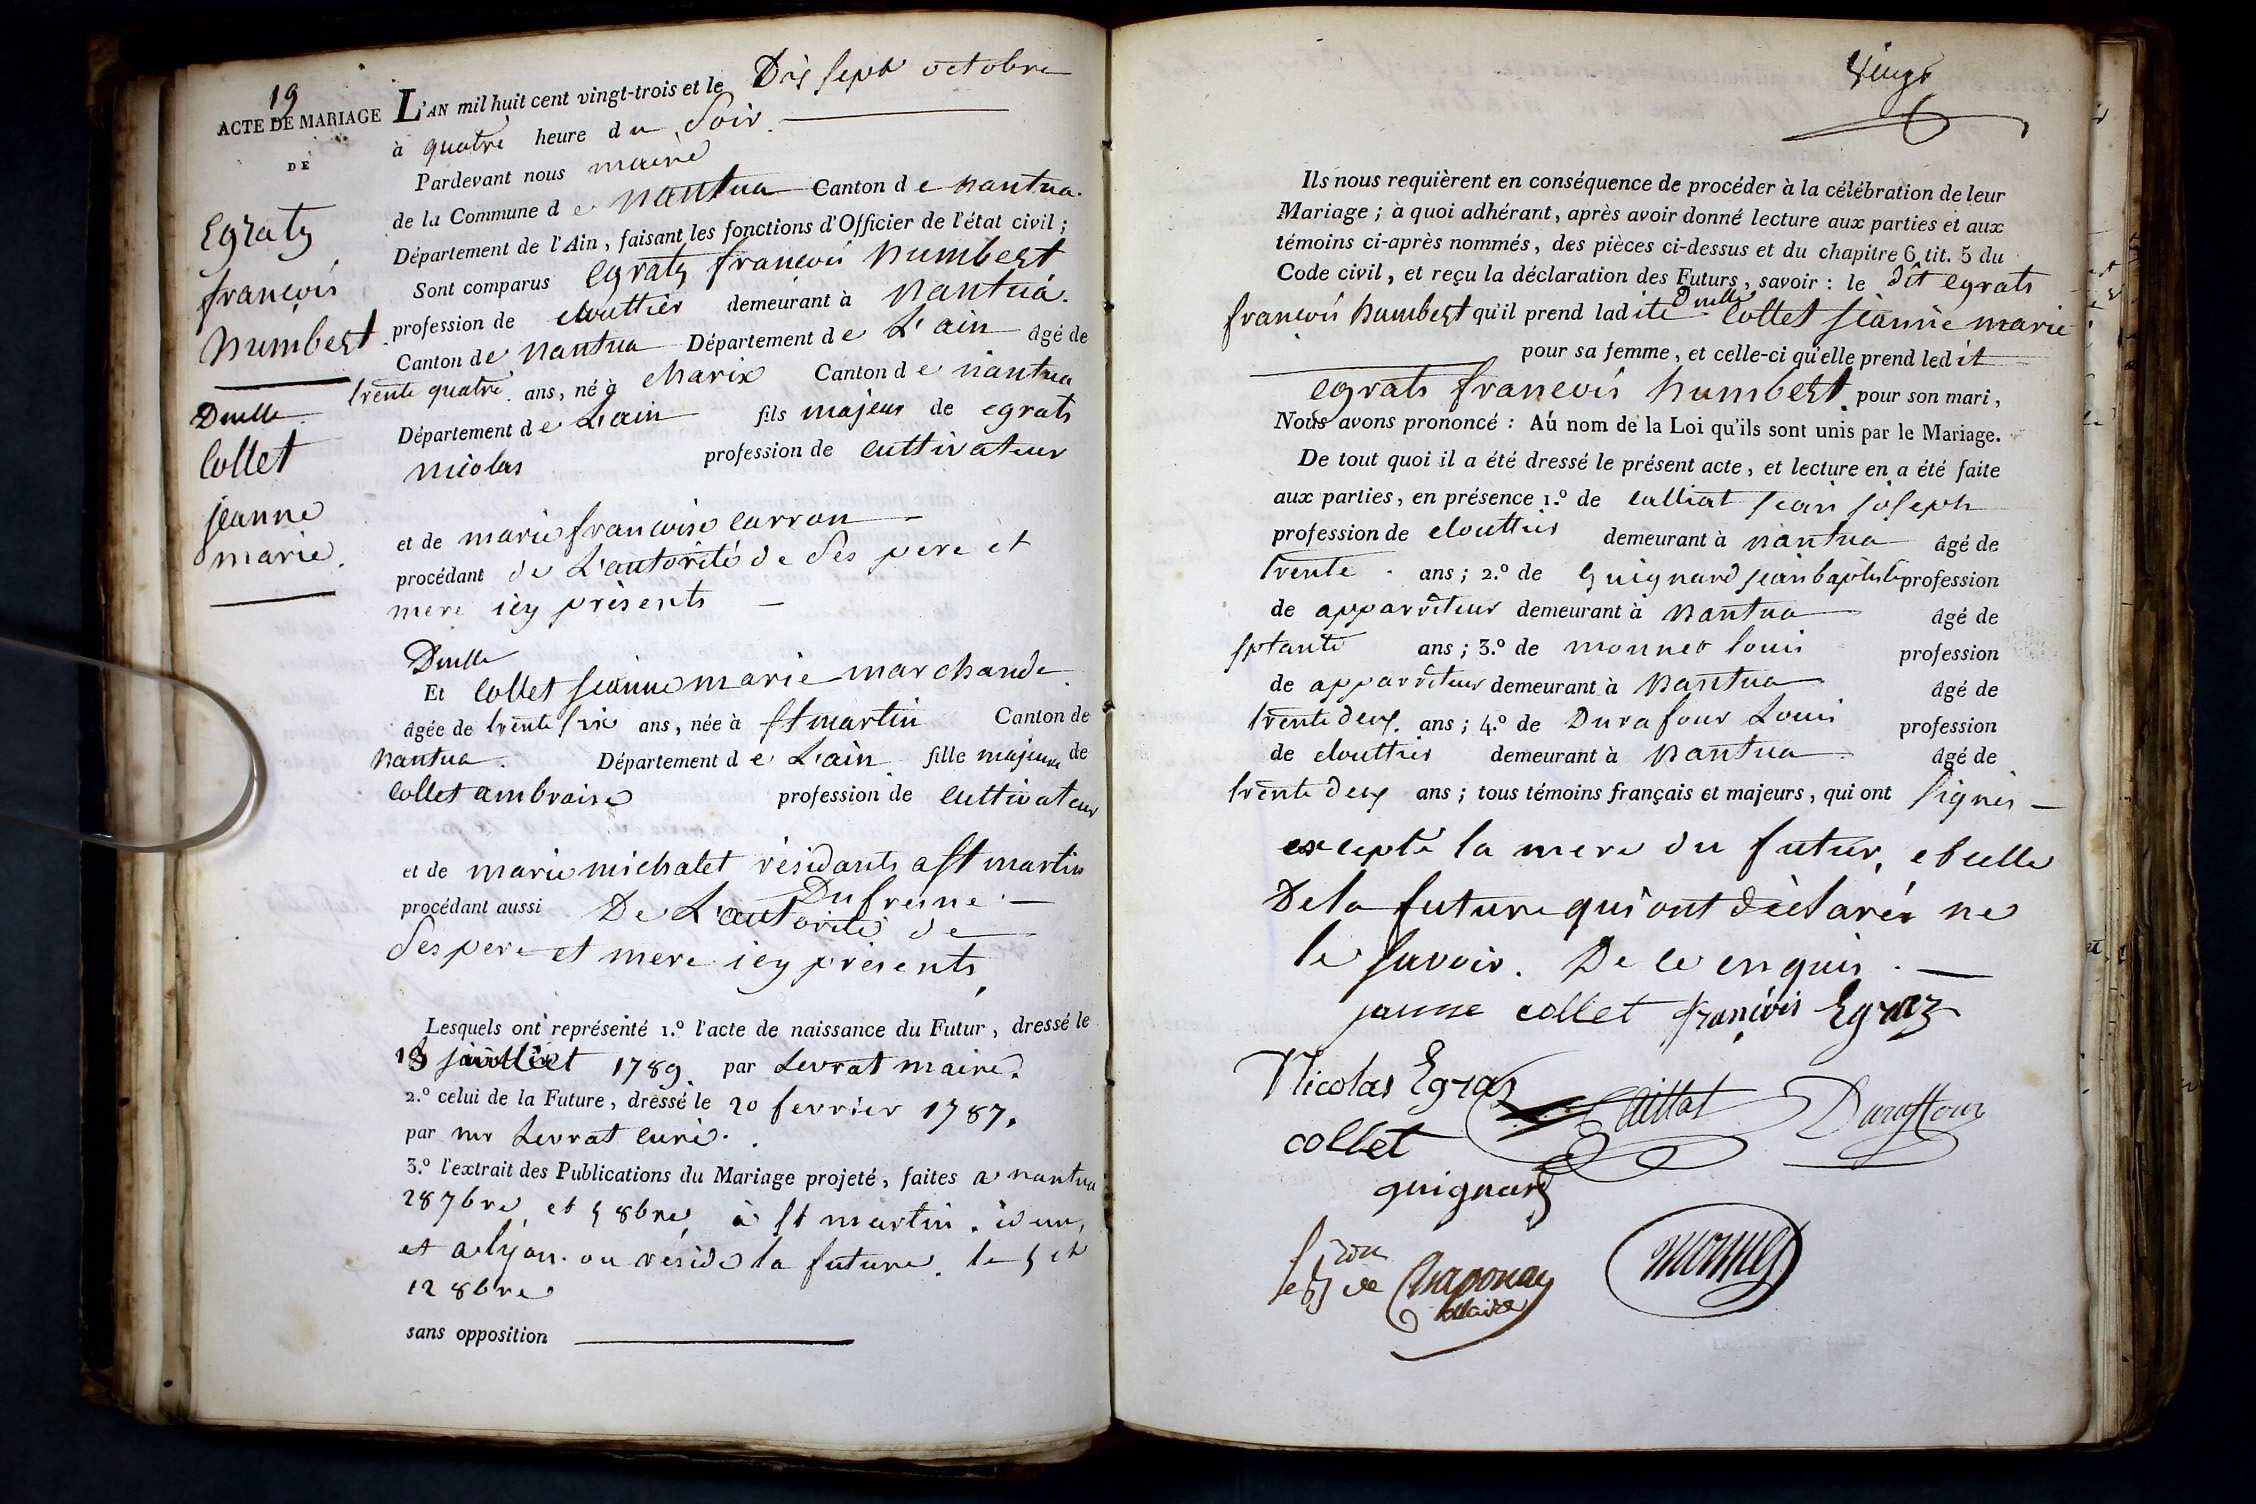 19
ACTE DE MARIAGE
DE
Egratz
francois
humbert.
Dmelle
Collet
jeanne
marie.
L'AN mil huit cent vingt-trois et le Dis sept octobre
à quatre heure du Soir.
Pardevant nous maire
de la Commune de nantua Canton de nantua.
Département de l'Ain, faisant les fonctions d'Officier de l'état civil;
Sont comparus Egratz francois humbert
profession de clouttier demeurant à nantua.
Canton de nantua Département de L'ain âgé de
trente quatre. ans, né à charix Canton de nantua
Département de L'ain fils majeur de egrats
nicolas profession de cultivateur
et de marie francoise carron
procédant de L'autorité de Ses pere et
mere icy présents
Dmelle
Et Collet jeanne marie marchande.
âgée de trente six ans, née à st martin Canton de
nantua. Département de L'ain fille majeure de
Collet ambroise profession de cultivateur
et de marie michalet résidants a st martin
Dufresne.
procédant aussi De L'autorité de
Ses pere et mere icy présents,
Lesquels ont représenté 1.º l'acte de naissance du Futur, dressé le
1789. par Levrat maire.
2.º celui de la Future, dressé le 20 fevrier 1787.
par mr Levrat curé.
3.º l'extrait des Publications du Mariage projeté, faites a nantua
28 7bre et 5 8bre à st martin. idem,
et a lyon. ou reside la future. le 5 et
12 8bre
sans opposition
vingt
Ils nous requièrent en conséquence de procéder à la célébration de leur
Mariage; à quoi adhérant, après avoir donné lecture aux parties et aux
témoins ci-après nommés, des pièces ci-dessus et du chapitre 6, tit. 5 du
Code civil, et reçu la déclaration des Futurs, savoir: le dit egrats
francois humbert qu'il prend ladite Dmelle Collet jeanne marie
pour sa femme, et celle-ci qu'elle prend ledit
egrats francois humbert. pour son mari,
Nous avons prononcé: Au nom de la Loi qu'ils sont unis par le Mariage.
De tout quoi il a été dressé le présent acte, et lecture en a été faite
aux parties, en présence 1.º de calliat jean joseph
profession de clouttier demeurant à nantua âgé de
trente. ans; 2.º de Guignard jean baptiste profession
de apparriteur demeurant à nantua âgé de
sptante ans; 3.º de monnet louis profession
de apparriteur demeurant à nantua âgé de
trente deux. ans; 4.º de Durafour Louis profession
de clouttier demeurant à nantua. âgé de
trente deux ans; tous témoins français et majeurs, qui ont signés
excepté la mere du futur, et celle
De la future qui ont déclarés ne
le savoir. De ce enquis.
janne collet françois Egraz
Nicolas Egraz Caillat Duraffour
collet
guignard
de Chaponay monnet
Maire